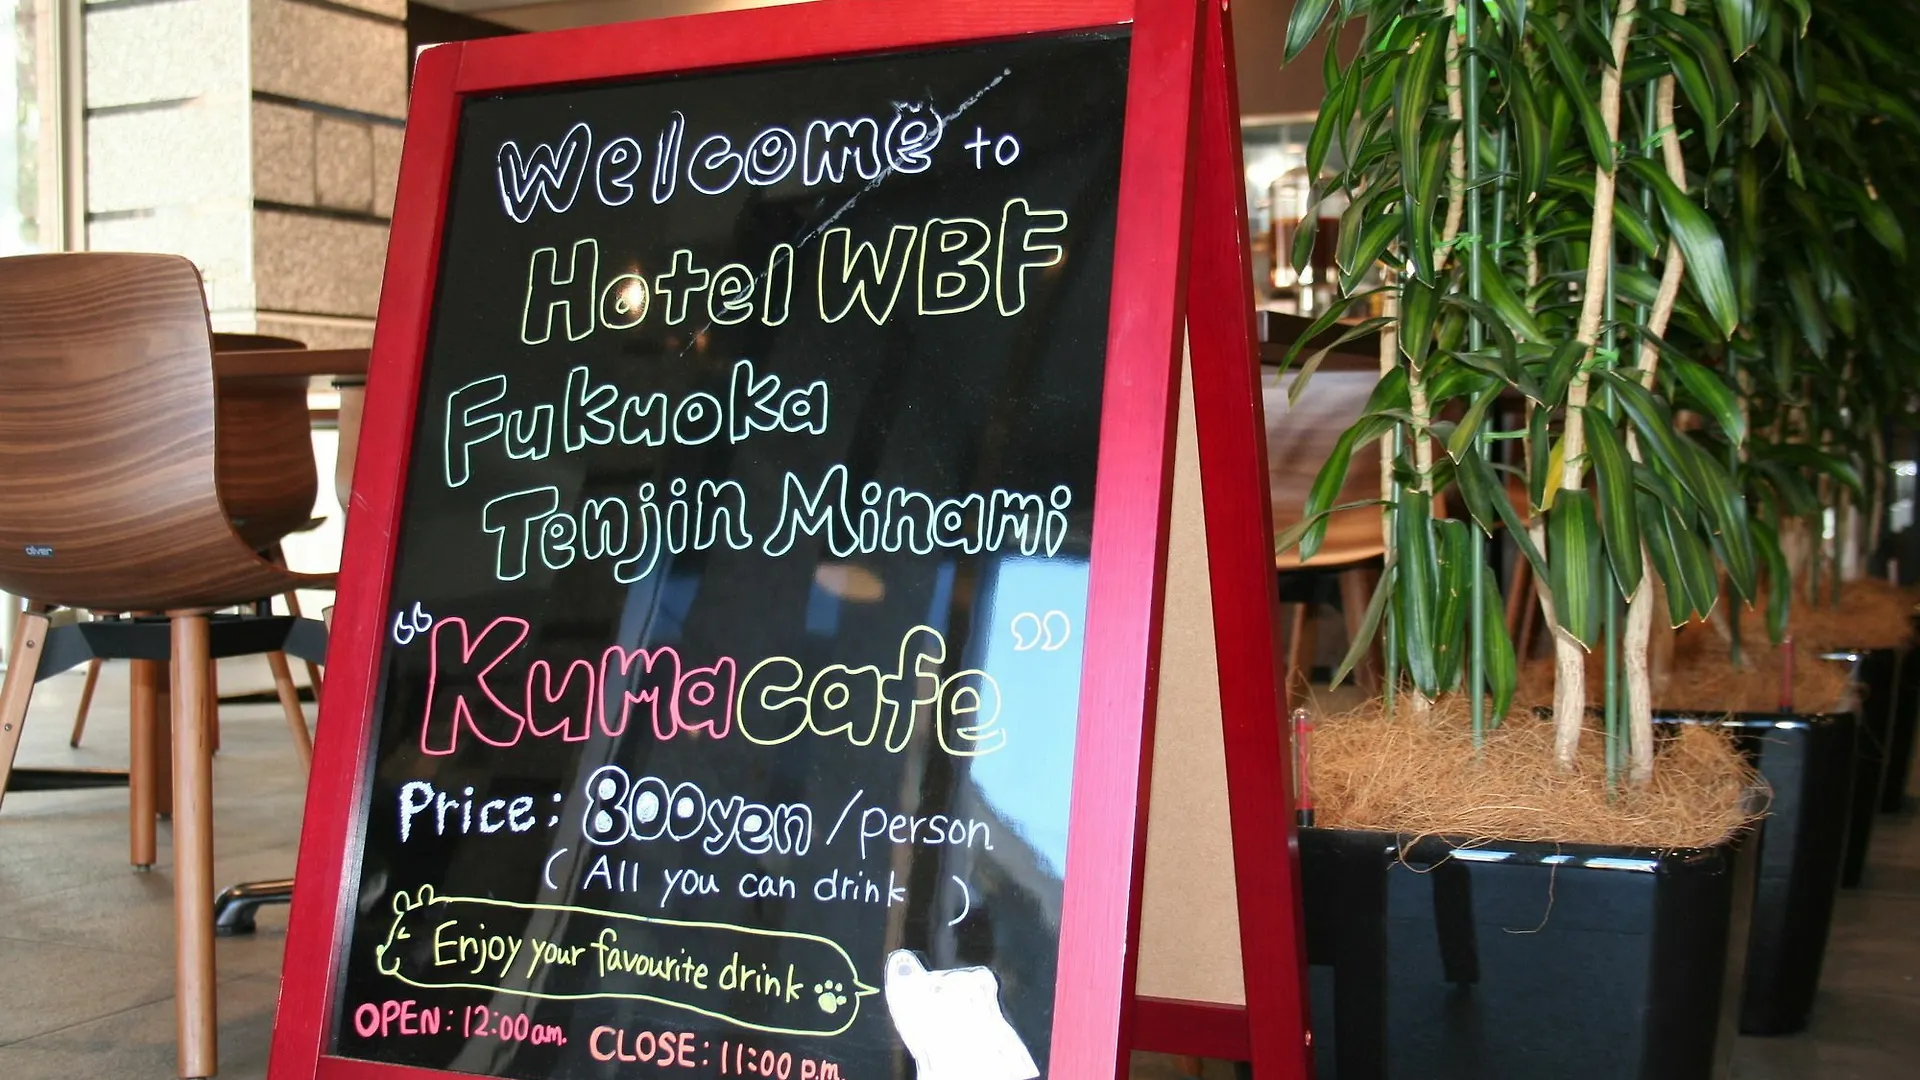 Welcome to
Hotel WBF
Fukuoka
Tenjin Minami
“Kumacafe”
Price: 800yen/person
( All you can drink )
Enjoy your favourite drink
OPEN: 12:00am. CLOSE: 11:00 p.m.
oliver